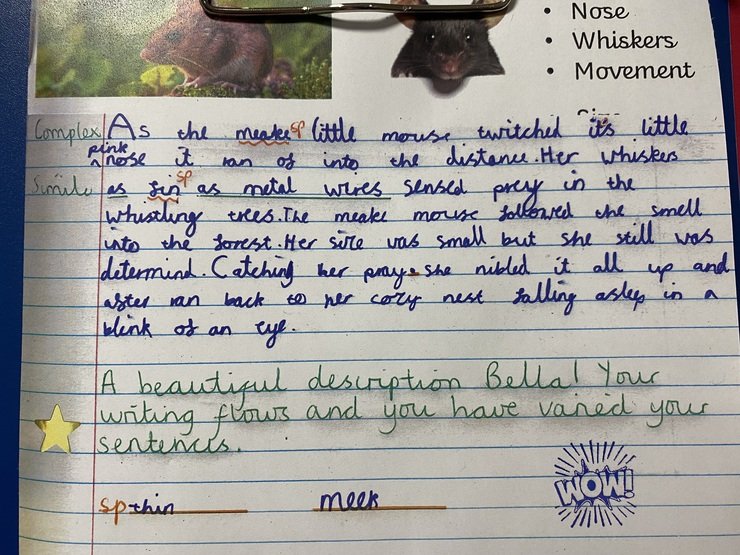 • Nose
• Whiskers
• Movement
Complex As the meake sp little mouse twitched it's little
pink
^nose it ran of into the distance. Her whiskers
Simile as fin sp as metal wires sensed prey in the
whustling trees. The meake mouse followed the smell
into the forest. Her size was small but she still was
determind. Catching her pray she nibled it all up and
after ran back to her cozy nest falling asleep in a
blink of an eye.
A beautiful description Bella! Your
writing flows and you have varied your
sentences.
sp thin meek
WOW!